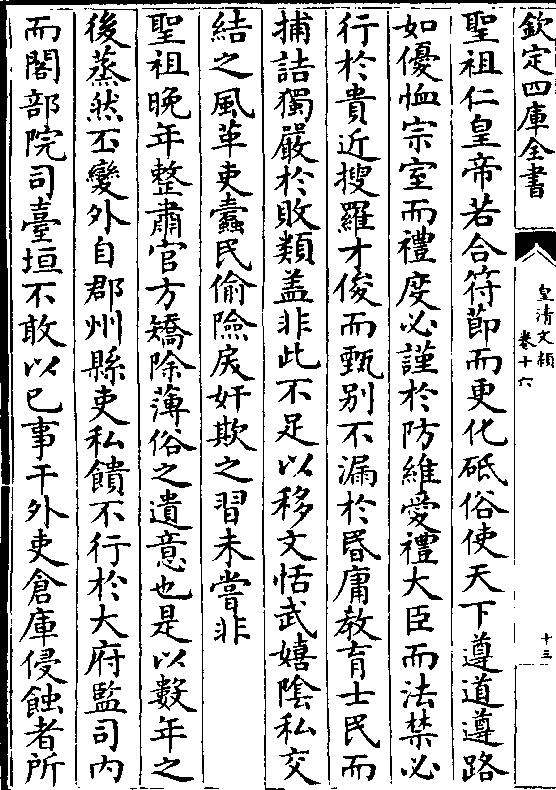 欽定四庫全書
皇清文穎
卷十六
十三
聖祖仁皇帝若合符節而更化砥俗使天下遵道遵路
如優恤宗室而禮度必謹於防維愛禮大臣而法禁必
行於貴近搜羅才俊而甄别不漏於昏庸敎育士民而
捕詰獨嚴於敗類盖非此不足以移文恬武嬉陰私交
結之風革吏蠹民偷險戾奸欺之習未嘗非
聖祖晚年整肅官方矯除薄俗之遺意也是以數年之
後蒸然丕變外自郡州縣吏私饋不行於大府監司内
而閣部院司臺垣不敢以已事干外吏倉庫侵蝕者所